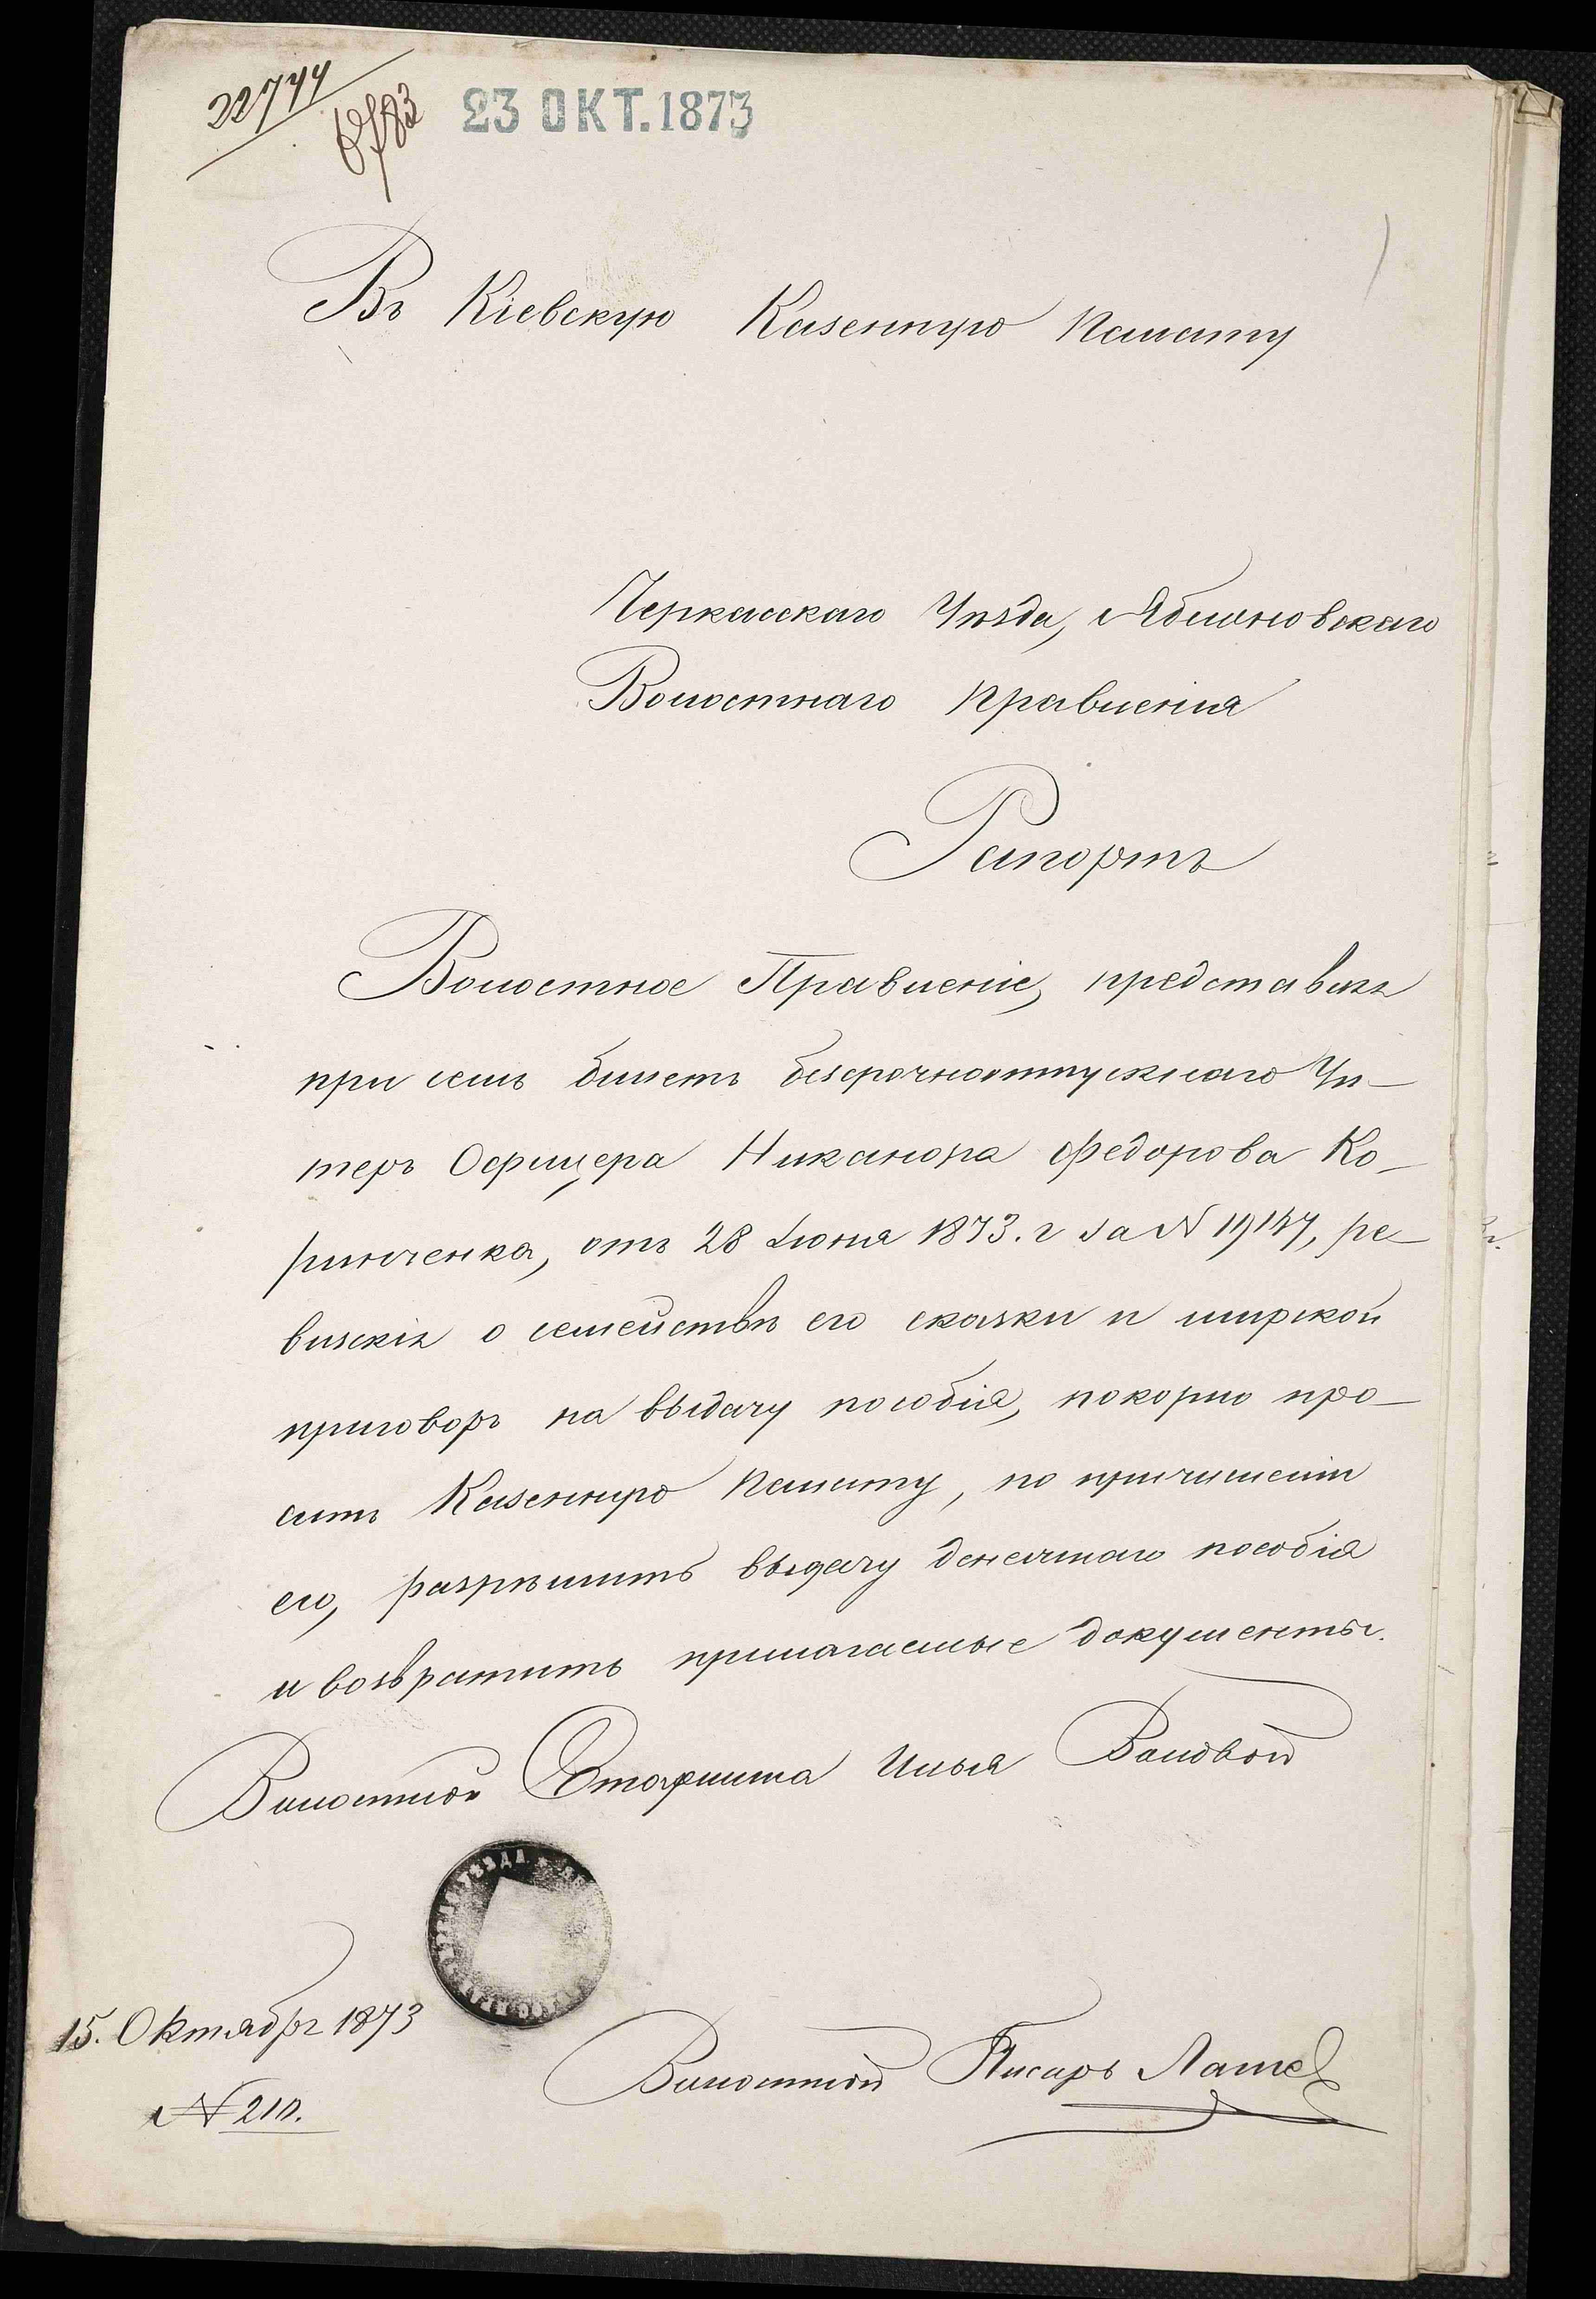 22744
23 ОКТ. 1873
Въ Кіевскую Казенную Палату
Черкасскаго Уѣзда, Яблоновскаго
Волостнаго Правленія
Рапортъ
Волостное Правленіе, представляя
при семъ билетъ безсрочноотпускнаго Ун-
теръ Офицера Никанора Федорова Ко-
ринченка, отъ 28 Іюня 1873. г за N 19147, ре-
визскія о семействѣ его сказки и мирской
приговоръ на выдачу пособія, покорно про-
ситъ Казенную Палату, по причисленіи
его, разрѣшить выдачу денежнаго пособія
и возвратить прилагаемые документы.
Волостной Старшина Илья Валовой
УѢЗДА
15. Октября 1873
N 210.
Волостной Писарь